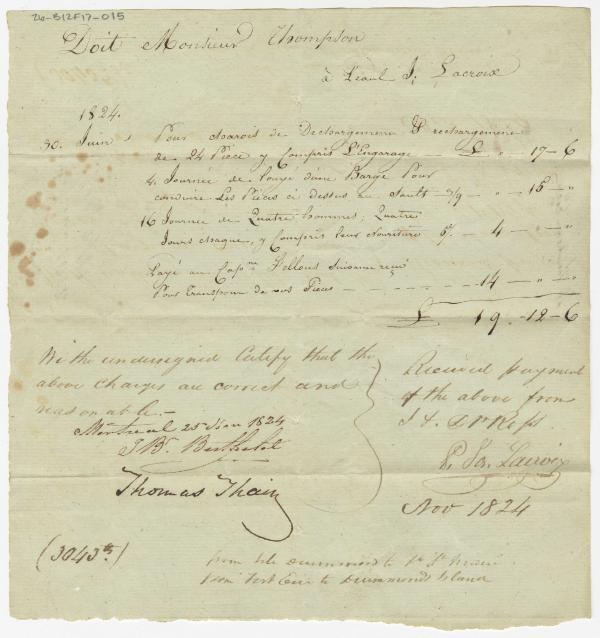 26-S12F17-015
Doit Monsieur Thompson
à Paul J. Lacroix
1824.
30. Juin. Pour charois de Dechargement & rechargement
de 24 Piece, y Compris L'Engarage £ " 17-6
4 Journée de louyé d'une Barge Pour
conduire Les Pieces ci dessus au Sault 3/9 - " - 15 - "
16 Journée de Quatre hommes, Quatre
Jours chaque, y Compris leur Nouriture 5/ - 4 - " - "
Payé au Capne Fellows suivant reçu
Pour transpour de vos Pieces - 14 - " - "
£ 19.-12-6
We the undersigned Certify that the
above charges are correct and
reasonable.-
Montreal 25 Nov 1824
J Bt. Berthelot
Thomas Thain
Received payment
of the above from
Dr
P. Js. Lacroix
Nov 1824
(3043 lb)
from Isle Drummond to St Marie
from Fort Erie to Drummonds Island